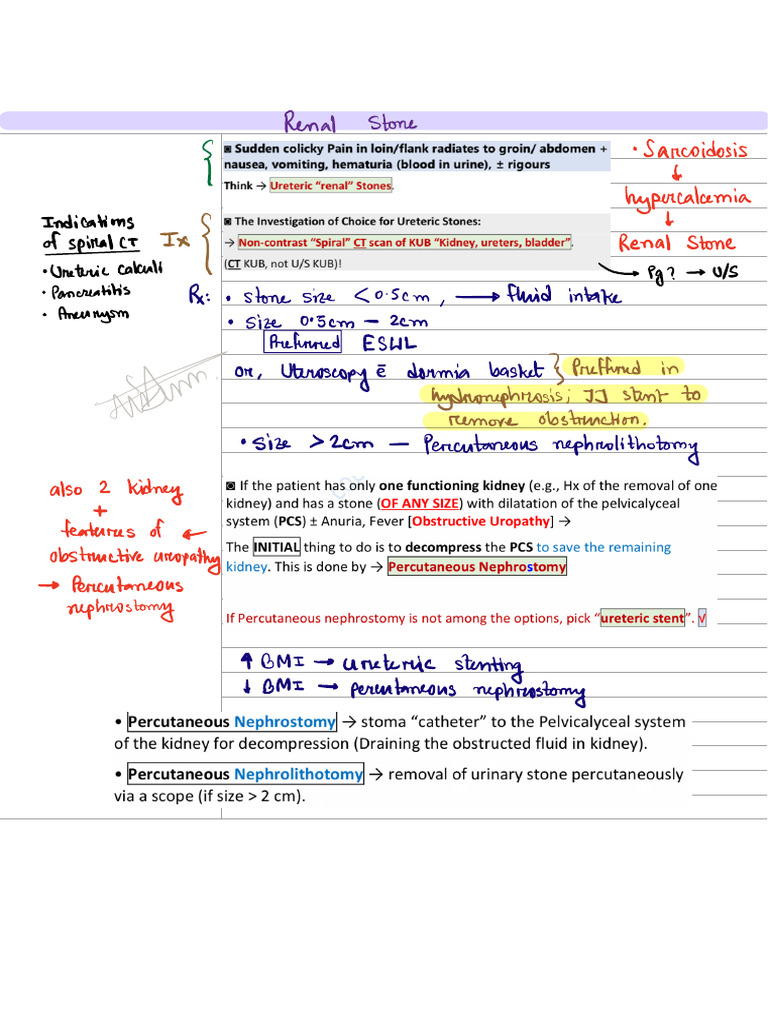 Renal Stone
◙ Sudden colicky Pain in loin/flank radiates to groin/ abdomen +
nausea, vomiting, hematuria (blood in urine), ± rigours
Think → Ureteric “renal” Stones.
• Sarcoidosis
↓
hypercalcemia
↓
Renal Stone
Indications
of spiral CT
• Ureteric calculi
• Pancreatitis
• Aneurysm
Ix
◙ The Investigation of Choice for Ureteric Stones:
→ Non-contrast “Spiral” CT scan of KUB “Kidney, ureters, bladder”.
(CT KUB, not U/S KUB)!
→ Pg? → U/S
Rx: • stone size < 0.5cm, → fluid intake
• size 0.5cm – 2cm
Preferred ESWL
or, Uteroscopy ē dormia basket
Preffured in
hydronephrosis; JJ stent to
remove obstruction.
• size > 2cm — Percutaneous nephrolithotomy
◙ If the patient has only one functioning kidney (e.g., Hx of the removal of one
kidney) and has a stone (OF ANY SIZE) with dilatation of the pelvicalyceal
system (PCS) ± Anuria, Fever [Obstructive Uropathy] →
The INITIAL thing to do is to decompress the PCS to save the remaining
kidney. This is done by → Percutaneous Nephrostomy
also 2 kidney
+
features of ←
obstructive uropathy
→ Percutaneous
nephrostomy
If Percutaneous nephrostomy is not among the options, pick “ureteric stent”. √
↑ BMI → ureteric stenting
↓ BMI → percutaneous nephrostomy
• Percutaneous Nephrostomy → stoma “catheter” to the Pelvicalyceal system
of the kidney for decompression (Draining the obstructed fluid in kidney).
• Percutaneous Nephrolithotomy → removal of urinary stone percutaneously
via a scope (if size > 2 cm).